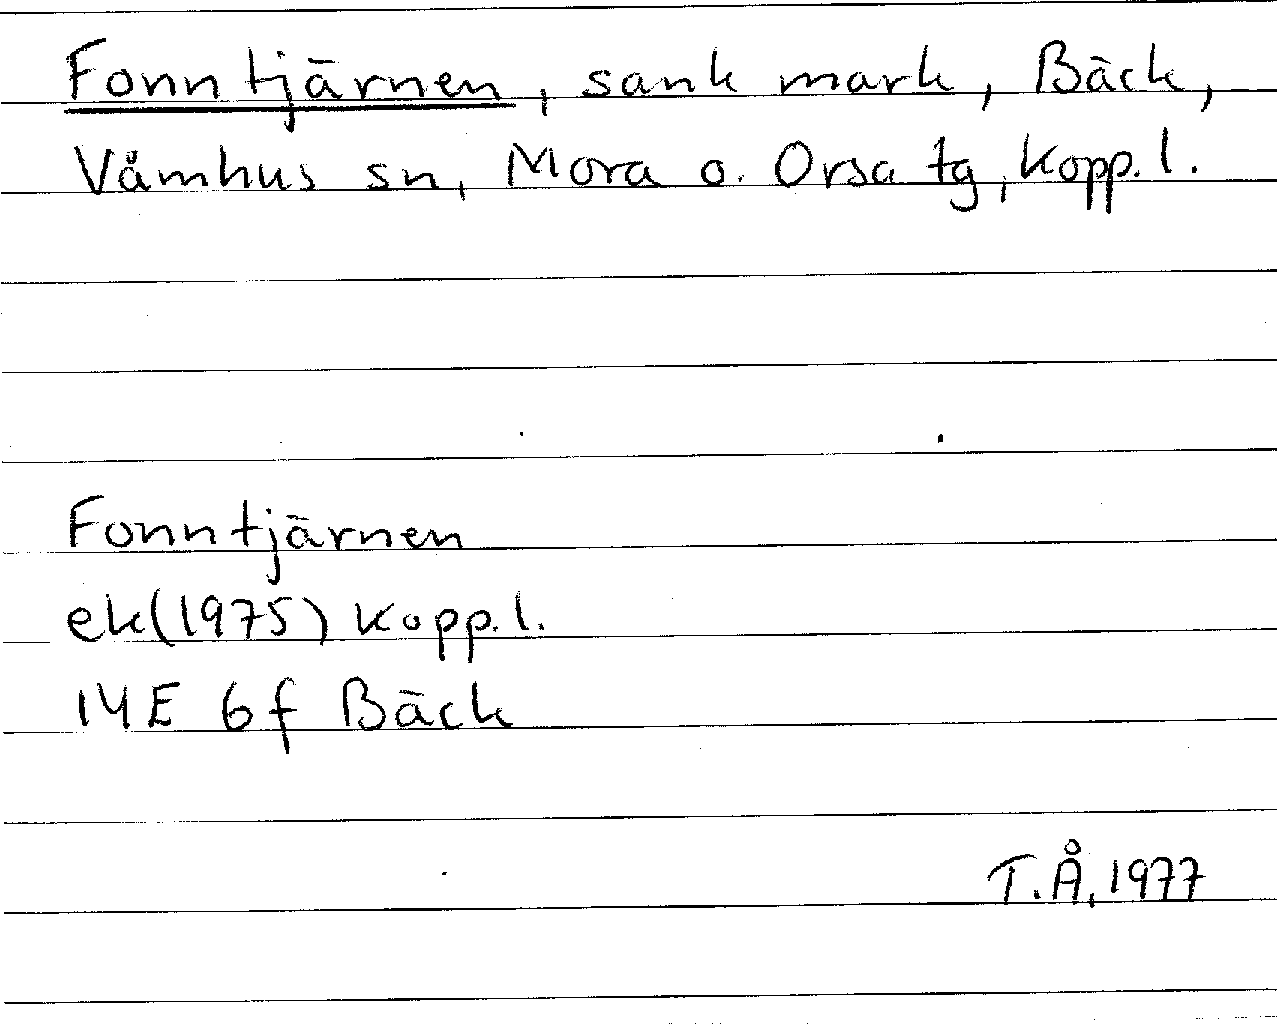 Fonntjärnen, sank mark, Bäck,
Våmhus sn, Mora o. Orsa tg, Kopp. l.
Fonntjärnen
ek(1975) Kopp. l.
14E 6f Bäck
T.Å, 1977